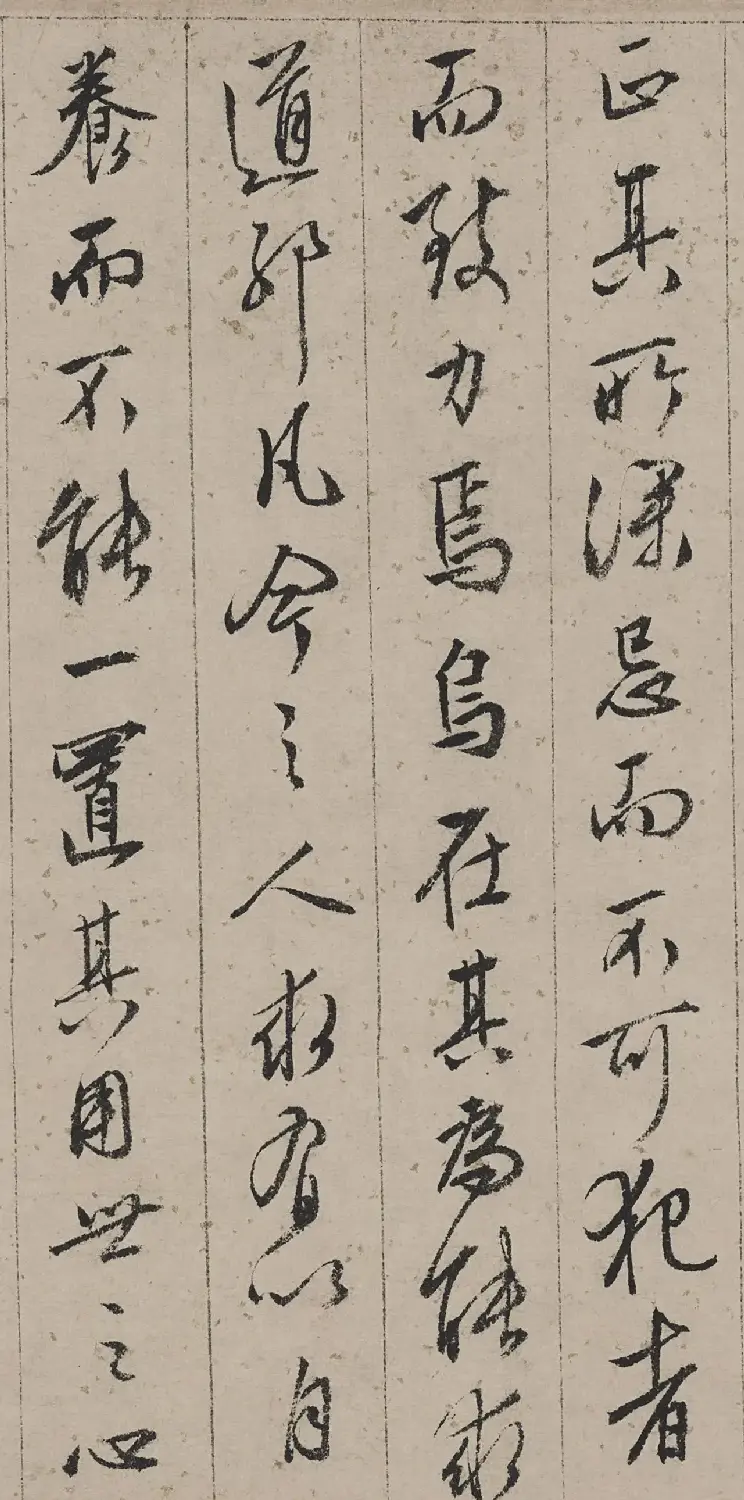 正其所深忌而不可犯者
而致力焉烏在其為能求
道邪凡今之人求有以自
養而不能一置其用世之心